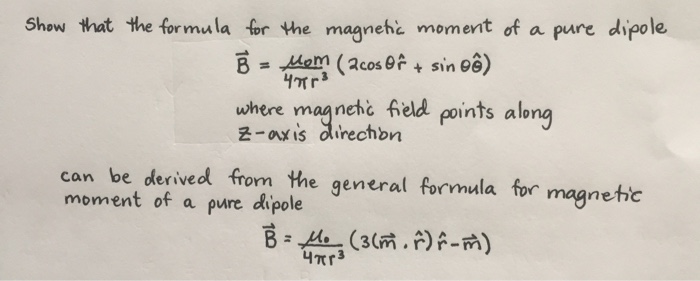 Show that the formula for the magnetic moment of a pure dipole
B⃗ = μ₀m/4πr³ (2cosθr̂ + sinθθ̂)
where magnetic field points along
z-axis direction
can be derived from the general formula for magnetic
moment of a pure dipole
B⃗ = μ₀/4πr³ (3(m⃗ . r̂) r̂ - m⃗)